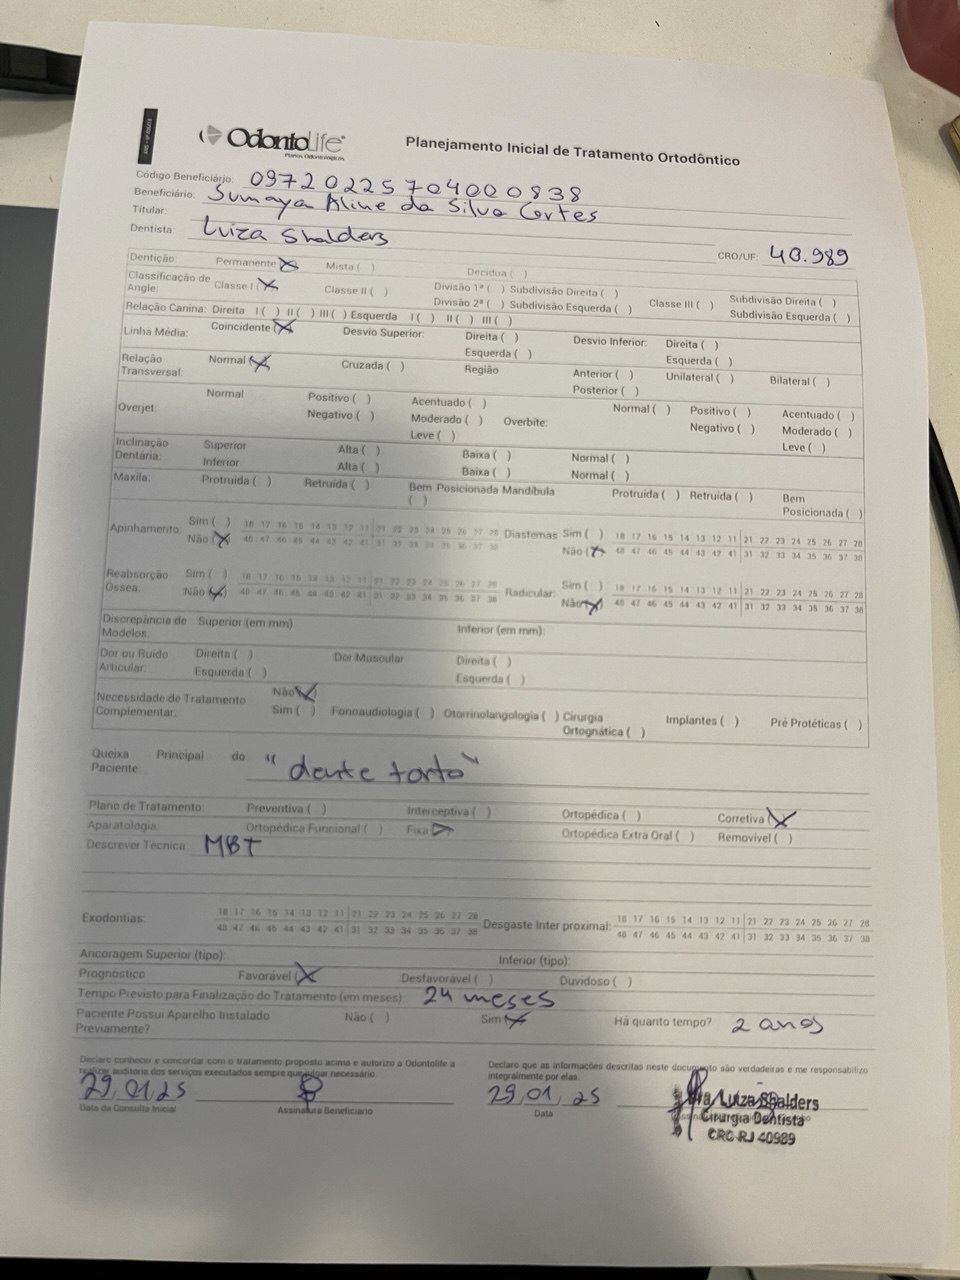 OdontoLife
Planos Odontológicos
Planejamento Inicial de Tratamento Ortodôntico
Código Beneficiário: 09720225704000838
Beneficiário: Sumaya Aline da Silva Cortes
Titular:
Dentista: Luiza Shalders CRO/UF: 40.989
Dentição: Permanente (X) Mista ( ) Decídua ( )
Classificação de Angle: Classe I (X) Classe II ( ) Divisão 1ª ( ) Subdivisão Direita ( ) Classe III ( ) Subdivisão Direita ( )
Divisão 2ª ( ) Subdivisão Esquerda ( ) Subdivisão Esquerda ( )
Relação Canina: Direita I ( ) II ( ) III ( ) Esquerda I ( ) II ( ) III ( )
Linha Média: Coincidente (X) Desvio Superior: Direita ( ) Desvio Inferior: Direita ( )
Esquerda ( ) Esquerda ( )
Relação Transversal: Normal (X) Cruzada ( ) Região Anterior ( ) Unilateral ( ) Bilateral ( )
Posterior ( )
Overjet: Normal Positivo ( ) Acentuado ( ) Overbite: Normal ( ) Positivo ( ) Acentuado ( )
Negativo ( ) Moderado ( ) Negativo ( ) Moderado ( )
Leve ( ) Leve ( )
Inclinação Dentária: Superior Alta ( ) Baixa ( ) Normal ( )
Inferior Alta ( ) Baixa ( ) Normal ( )
Maxila: Protruída ( ) Retruída ( ) Bem Posicionada ( ) Mandíbula Protruída ( ) Retruída ( ) Bem Posicionada ( )
Apinhamento: Sim ( ) 18 17 16 15 14 13 12 11 21 22 23 24 25 26 27 28 Diastemas Sim ( ) 18 17 16 15 14 13 12 11 21 22 23 24 25 26 27 28
Não (X) 48 47 46 45 44 43 42 41 31 32 33 34 35 36 37 38 Não (X) 48 47 46 45 44 43 42 41 31 32 33 34 35 36 37 38
Reabsorção Óssea: Sim ( ) 18 17 16 15 14 13 12 11 21 22 23 24 25 26 27 28 Radicular: Sim ( ) 18 17 16 15 14 13 12 11 21 22 23 24 25 26 27 28
Não (X) 48 47 46 45 44 43 42 41 31 32 33 34 35 36 37 38 Não (X) 48 47 46 45 44 43 42 41 31 32 33 34 35 36 37 38
Discrepância de Modelos: Superior (em mm) Inferior (em mm):
Dor ou Ruído Articular: Direita ( ) Dor Muscular Direita ( )
Esquerda ( ) Esquerda ( )
Necessidade de Tratamento Complementar: Não (X)
Sim ( ) Fonoaudiologia ( ) Otorrinolangologia ( ) Cirurgia Ortognática ( ) Implantes ( ) Pré Protéticas ( )
Queixa Principal do Paciente: "dente torto"
Plano de Tratamento: Preventiva ( ) Interceptiva ( ) Ortopédica ( ) Corretiva (X)
Aparatologia: Ortopédica Funcional ( ) Fixa (X) Ortopédica Extra Oral ( ) Removível ( )
Descrever Técnica: MBT
Exodontias: 18 17 16 15 14 13 12 11 21 22 23 24 25 26 27 28 Desgaste Inter proximal: 18 17 16 15 14 13 12 11 21 22 23 24 25 26 27 28
48 47 46 45 44 43 42 41 31 32 33 34 35 36 37 38 48 47 46 45 44 43 42 41 31 32 33 34 35 36 37 38
Ancoragem Superior (tipo): Inferior (tipo):
Prognóstico Favorável (X) Desfavorável ( ) Duvidoso ( )
Tempo Previsto para Finalização do Tratamento (em meses): 24 meses
Paciente Possui Aparelho Instalado Previamente? Não ( ) Sim (X) Há quanto tempo? 2 anos
Declaro conhecer e concordar com o tratamento proposto acima e autorizo a Odontolife a
realizar auditoria dos serviços executados sempre que julgar necessário.
29/01/25
Data da Consulta Inicial Assinatura Beneficiário
Declaro que as informações descritas neste documento são verdadeiras e me responsabilizo
integralmente por elas.
29/01/25
Data
Dra Luiza Shalders
Cirurgia Dentista
CRO-RJ 40989